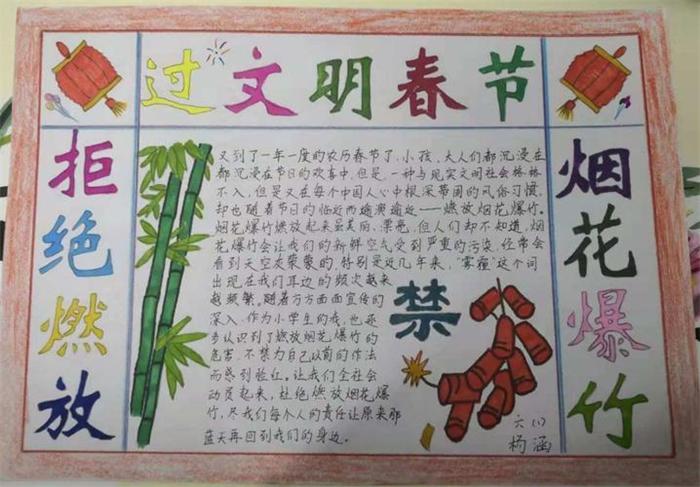 过文明春节
拒绝燃放
又到了一年一度的农历春节了,小孩,大人们都沉浸在
都沉浸在节日的欢喜中,但是,一种与现实文明社会格格
不入,但是又在每个中国人心中根深蒂固的风俗习惯,
却也随着节日的临近而越演越近——燃放烟花爆竹。
烟花爆竹燃放起来虽美丽、漂亮,但人们却不知道,烟
花爆竹会让我们的新鲜空气受到严重的污染,经常会
看到天空灰蒙蒙的,特别是近几年来,“雾霾”这个词
出现在我们耳边的频次越来
越频繁。随着方方面面宣传的
深入,作为小学生的我,也逐
步认识到了燃放烟花爆竹的
危害,不禁为自己以前的作法
而感到脸红。让我们全社会
动员起来,杜绝燃放烟花爆
竹,尽我们每个人的责任让原来那
蓝天再回到我们的身边。
禁
六(1)
杨涵
烟花爆竹